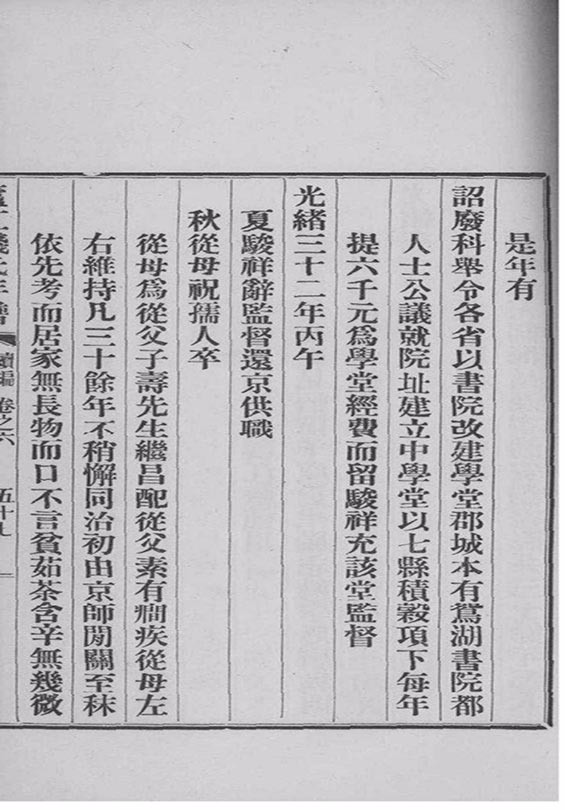 是年有
詔廢科舉令各省以書院改建學堂郡城本有鴛湖書院都
人士公議就院址建立中學堂以七縣積穀項下每年
提六千元爲學堂經費而留駿祥充該堂監督
光緒三十二年丙午
夏駿祥辭監督還京供職
秋從母祝孺人卒
從母爲從父子壽先生繼昌配從父素有癇疾從母左
右維持凡三十餘年不稍懈同治初由京師閒關至秣
依先考而居家無長物而口不言貧茹荼含辛無幾微
續編 卷之六 五十九